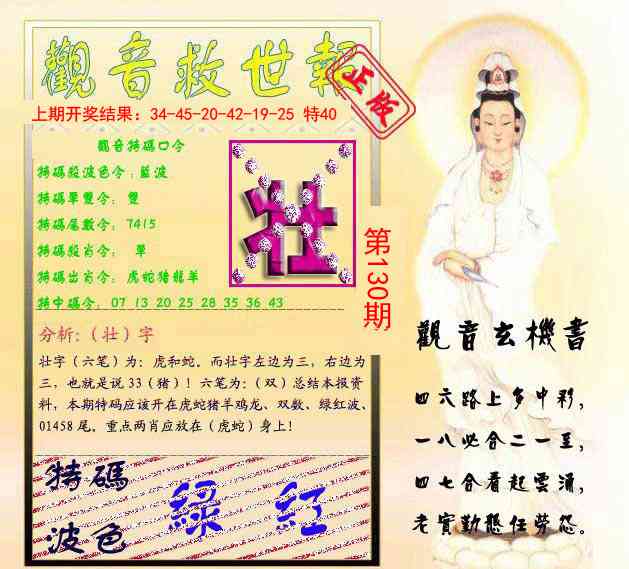 觀音救世報
正版
上期开奖结果：34-45-20-42-19-25 特40
觀音特碼口令
特碼殺波色令：藍波
特碼單雙令： 雙
特碼尾數令： 7415
特碼殺肖令： 單
特碼出肖令： 虎蛇猪龍羊
特中碼令： 07 13 20 25 28 35 36 43
壮
第130期
分析：（壮）字
壮字（六笔）为：虎和蛇。而壮字左边为三，右边为
三，也就是说 33（猪）！六笔为：（双）总结本报资
料，本期特码应该开在虎蛇猪羊鸡龙、双数、绿红波、
01458 尾。重点两肖应放在（虎蛇）身上！
特碼
波色
綠 紅
觀音玄機書
四六路上多中彩，
一八必合二一至，
四七合看起雲涌，
老實勤懇任勞怨。